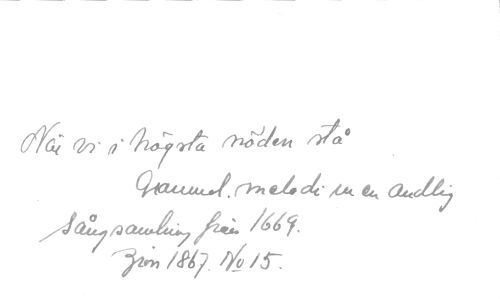 När vi i högsta nöden stå
Gammal. melodi ur en andlig
sångsamling från 1669.
Zion 1867. No 15.